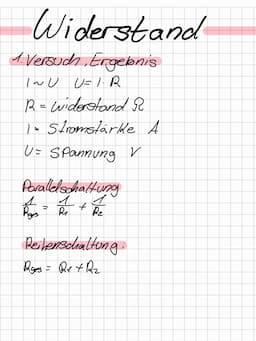 Widerstand
1. Versuch, Ergebnis
I ~ U U = I · R
R = Widerstand Ω
I = Stromstärke A
U = Spannung V
Parallelschaltung
1/Rges = 1/R1 + 1/R2
Reihenschaltung.
Rges = R1 + R2